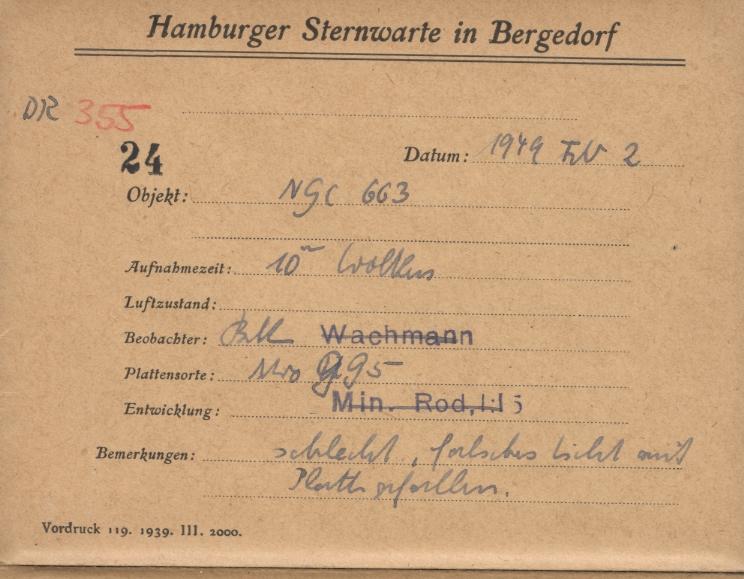 Hamburger Sternwarte in Bergedorf
DR 355
24
Datum: 1949 Feb 2
Objekt: NGC 663
Aufnahmezeit: 10ᵐ Wolken
Luftzustand:
Beobachter: Wachmann
Plattensorte: 95
Entwicklung: Min. Rod, 1:15
Bemerkungen: schlecht, falsches Licht auf
Platte gefallen.
Vordruck 119. 1939. III. 2000.